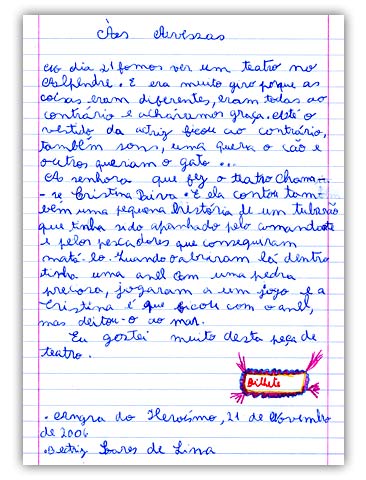 Às Avessas
No dia 21 fomos ver um teatro no
Alpendre. E era muito giro porque as
coisas eram diferentes, eram todas ao
contrário e achávamos graça. Até o
vestido da actriz ficou ao contrário,
também sons, uma queria o cão e
outros queriam o gato...
A senhora que fez o teatro chama-
-se Cristina Paiva. E ela contou tam-
bém uma pequena história de um tubarão
que tinha sido apanhado pelo comandante
e pelos pescadores que conseguiram
matá-lo. Quando o abriram lá dentro
tinha uma anel com uma pedra
preciosa, jogaram a um jogo e a
Cristina é que ficou com o anel,
mas deitou-o ao mar.
Eu gostei muito desta peça de
teatro.
Bilhete
. Angra do Heroísmo, 21 de Novembro
de 2006
. Beatriz Soares de Lima